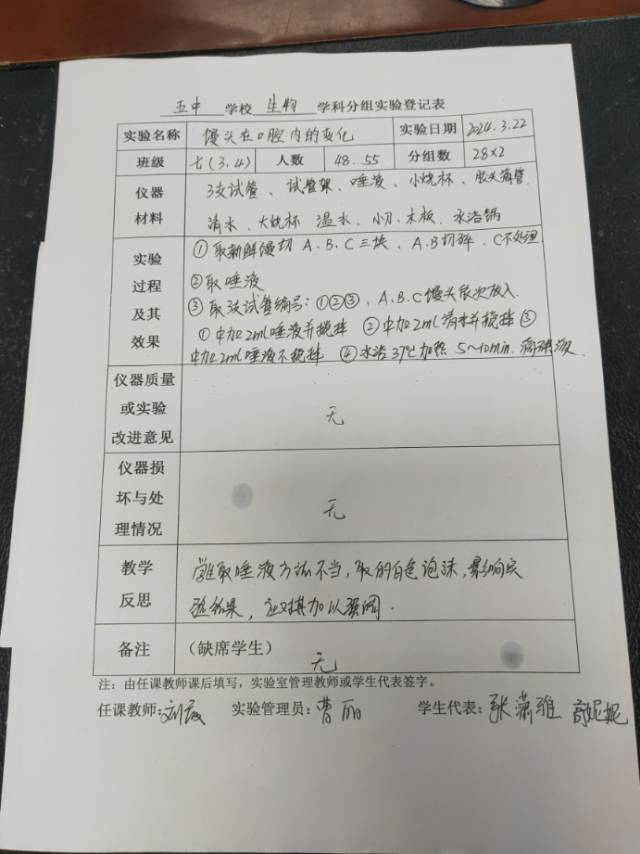 五中 学校 生物 学科分组实验登记表
实验名称 馒头在口腔内的变化 实验日期 2024.3.22
班级 七(3,4) 人数 48.55 分组数 28×2
仪器材料 3支试管、试管架、唾液、小烧杯、胶头滴管
清水、大烧杯 温水、小刀、木板、水浴锅
实验过程及其效果 ①取新鲜馒切A、B、C三块、A、B切碎、C不处理
②取唾液
③取3支试管编号:①②③、A、B、C馒头依次放入.
①中加2ml唾液并搅拌 ②中加2ml清水并搅拌 ③
中加2ml唾液不搅拌 ④水浴37℃加热 5~10min.滴碘液.
仪器质量或实验改进意见 无
仪器损坏与处理情况 无
教学反思 取唾液方法不当,取的白色泡沫,影响实
验结果,应对其加以强调.
备注 (缺席学生)
无
注:由任课教师课后填写,实验室管理教师或学生代表签字。
任课教师: 实验管理员:曹丽 学生代表:张潇雅